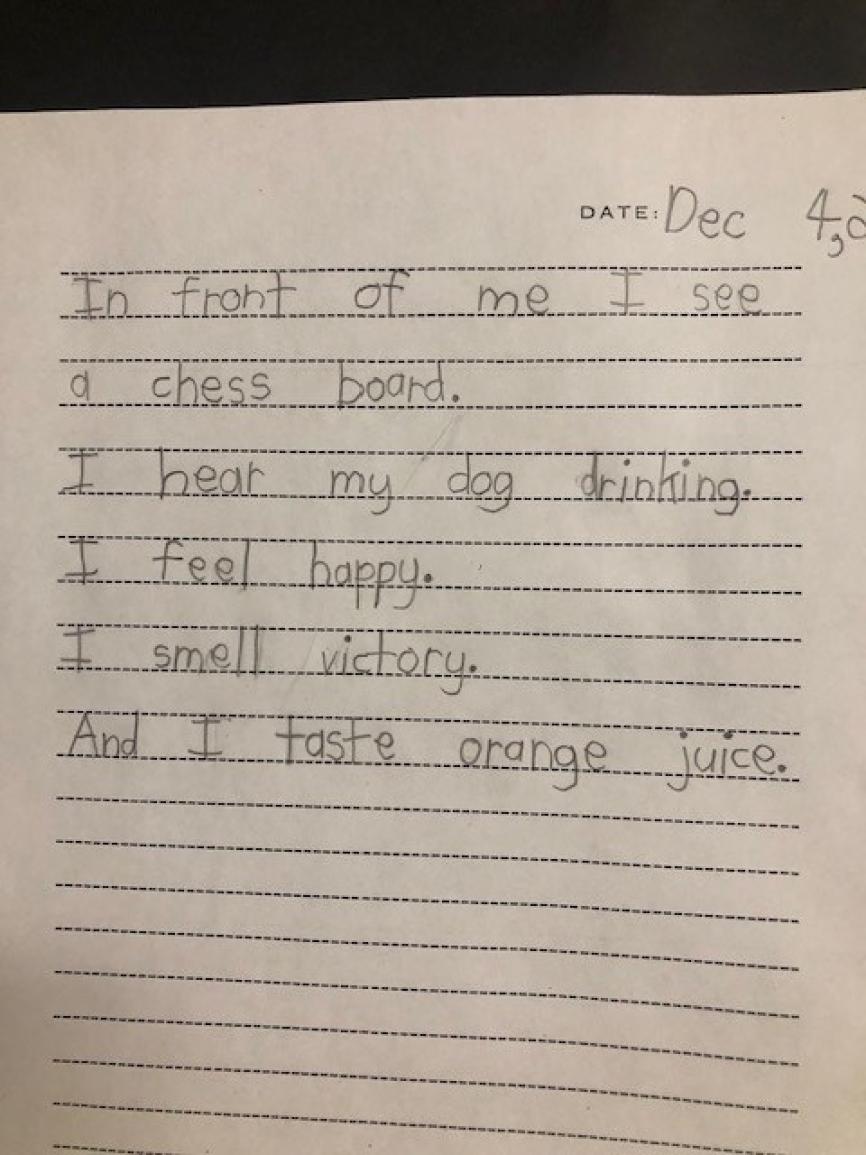 DATE: Dec 4,
In front of me I see
a chess board.
I hear my dog drinking.
I feel happy.
I smell victory.
And I taste orange juice.